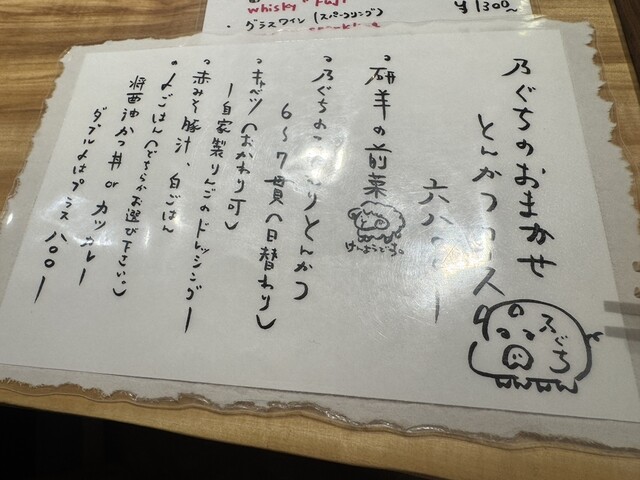 whisky
¥1300~
・グラスワイン(スパークリング)
乃ぐちのおまかせ
とんかつコース
六八〇〇ー
乃ぐち
・研羊の前菜
けんようとは。
・乃ぐちの とんかつ
6〜7貫(日替わり)
・キャベツ(おかわり可)
ー自家製りんごのドレッシングー
・赤みそ豚汁、白ごはん
・〆ごはん(どちらかお選び下さい。)
将西油かつ丼 or カツカレー
ダブル〆はプラス 八〇〇ー